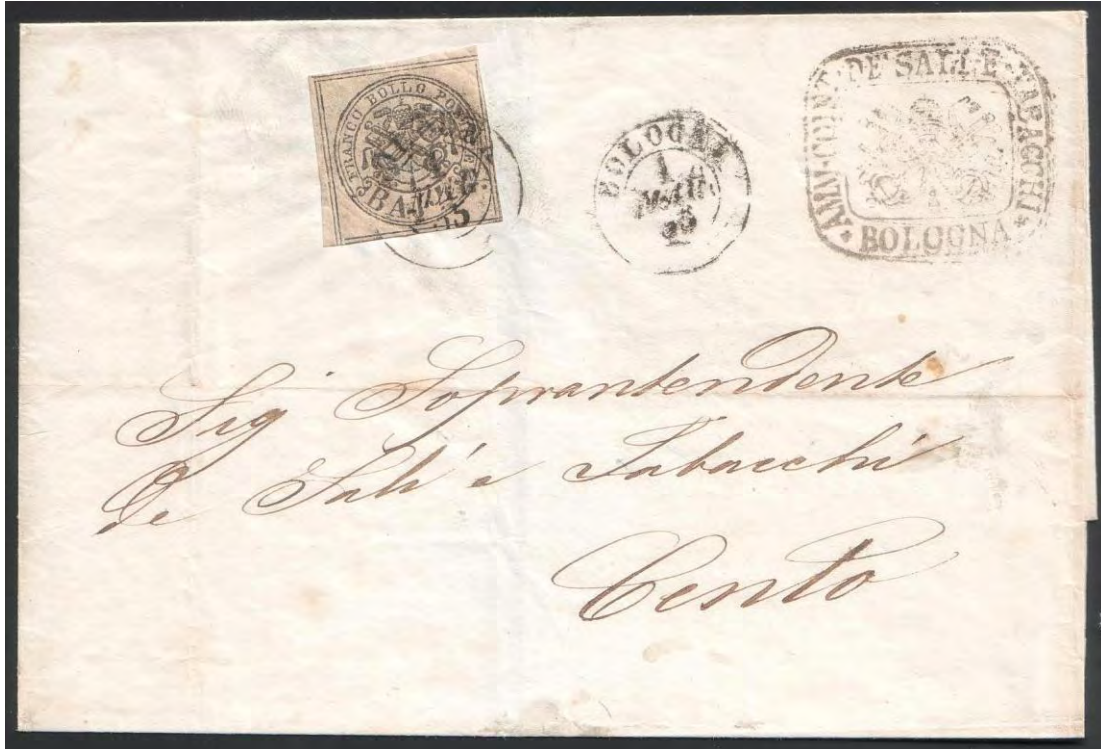 FRANCO BOLLO POSTALE
BAJ
BOLOGNA
1
MAR
AMN·COINT·DE' SALI·E·TABACCHI
BOLOGNA
Sig Soprantendente
De Sali e Tabacchi
Cento